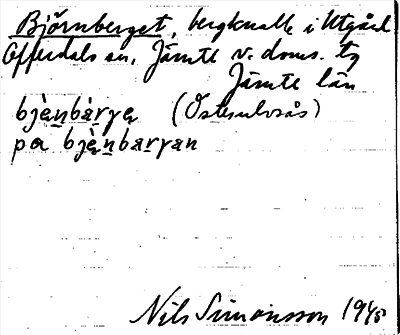 Björnberget, bergknalle i Utgård
Offerdals sn, Jämtl. v. doms. tg
Jämtl. län
bjɛ̀ṇbàrɣɐ (Östersulvsås)
pɑ bjɛ̀ṇbarɣan
Nils Simonsson 1945